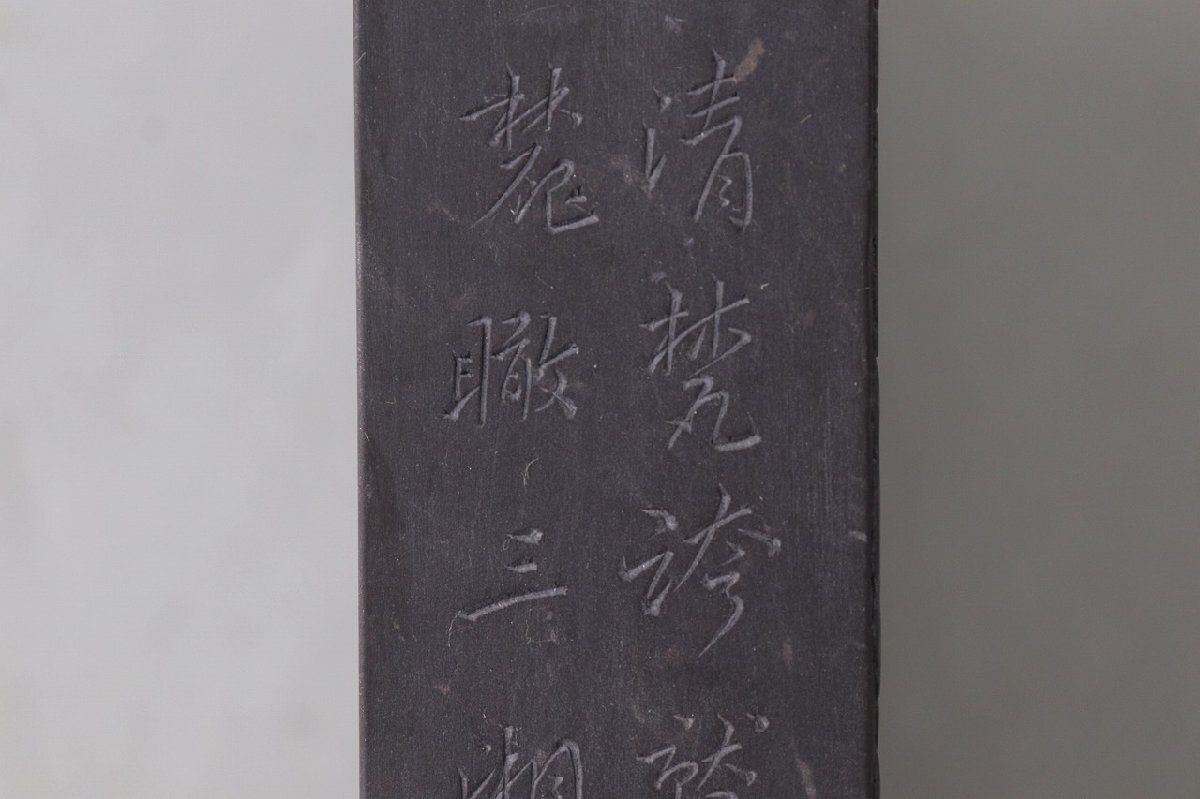 清梵誇
麓瞰三